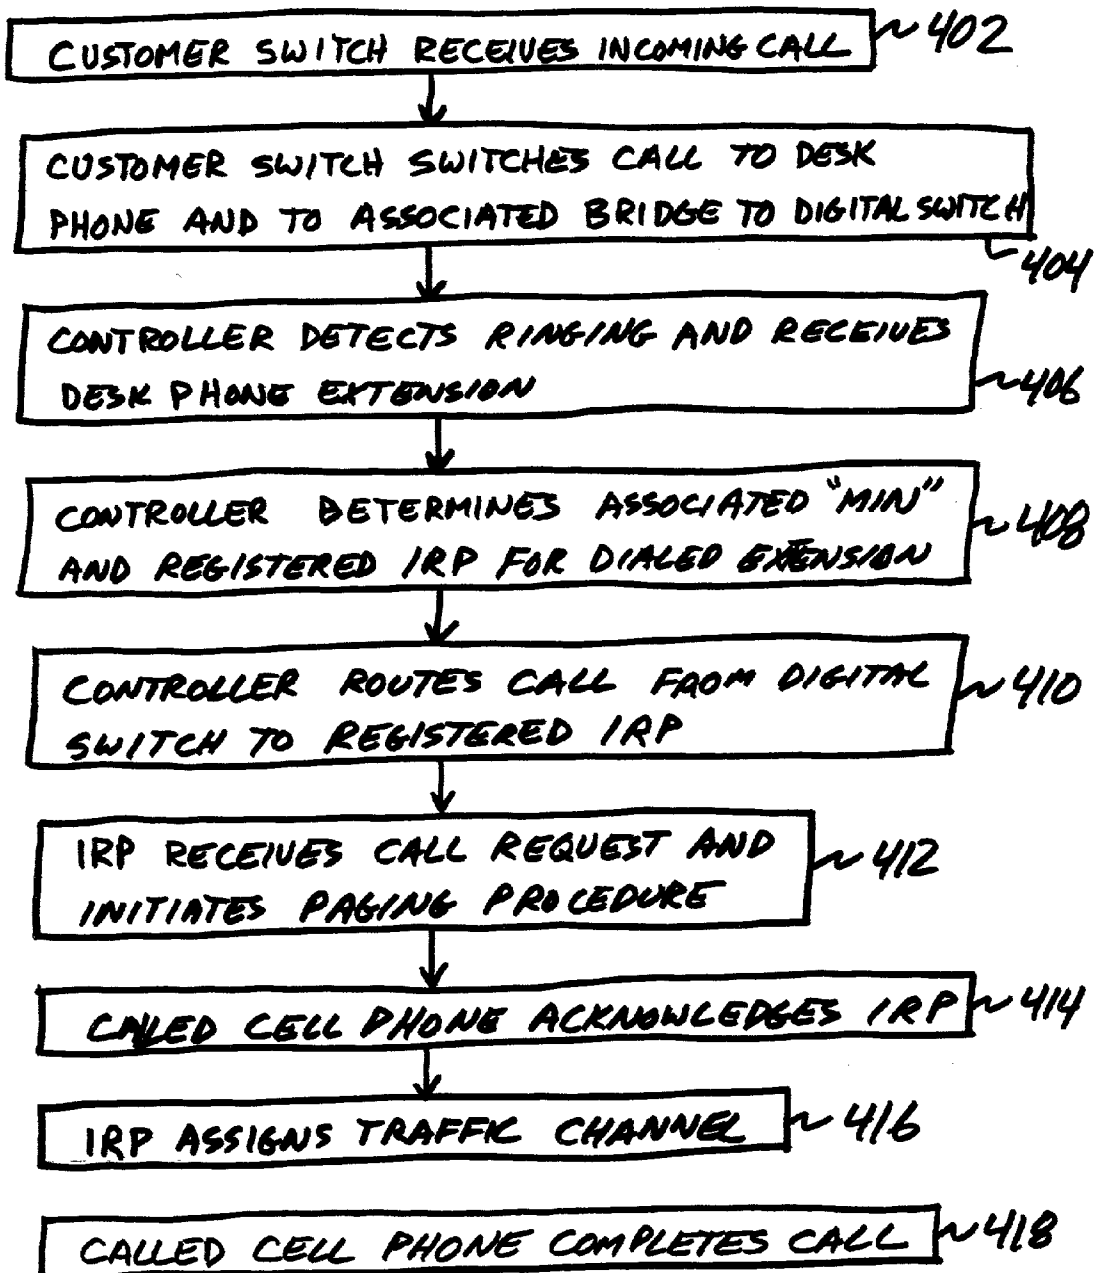 CUSTOMER SWITCH RECEIVES INCOMING CALL 402
CUSTOMER SWITCH SWITCHES CALL TO DESK
PHONE AND TO ASSOCIATED BRIDGE TO DIGITAL SWITCH
404
CONTROLLER DETECTS RINGING AND RECEIVES
DESK PHONE EXTENSION 406
CONTROLLER DETERMINES ASSOCIATED "MIN"
AND REGISTERED IRP FOR DIALED EXTENSION 408
CONTROLLER ROUTES CALL FROM DIGITAL
SWITCH TO REGISTERED IRP 410
IRP RECEIVES CALL REQUEST AND
INITIATES PAGING PROCEDURE 412
CALLED CELL PHONE ACKNOWLEDGES IRP 414
IRP ASSIGNS TRAFFIC CHANNEL 416
CALLED CELL PHONE COMPLETES CALL 418